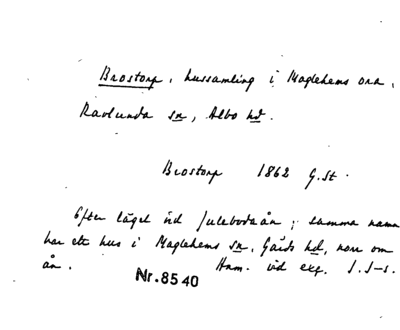 Brostorp, hussamling i Maglehems ora,
Ravlunda sn, Albo hd.
Brostorp 1862 G.St.
Efter läget vid Julebodaån; samma namn
har ett hus i Maglehems sn, Gärds hd, norr om
ån. Hnm. vid exc. I.S-s.
Nr. 8540